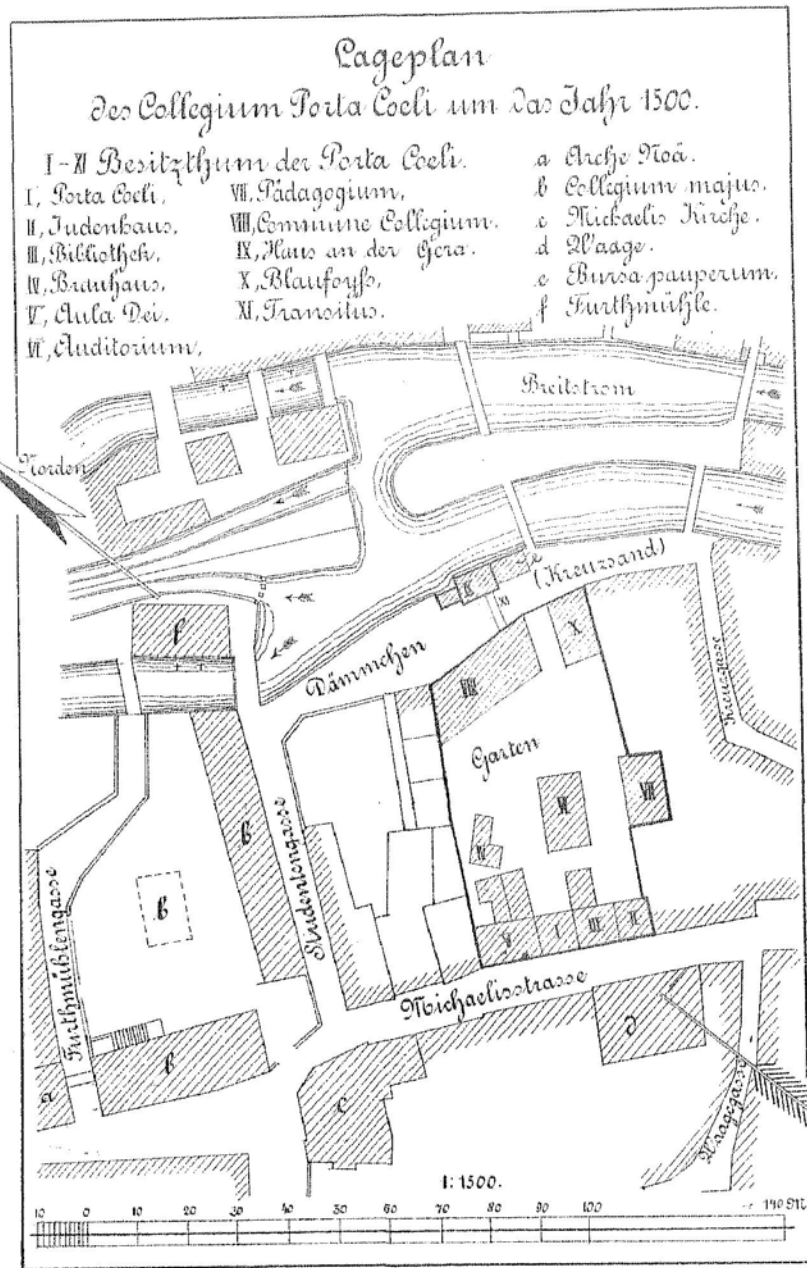 Lageplan
des Collegium Porta Coeli um das Jahr 1500.
I-XI Besitzthum der Porta Coeli.
I, Porta Coeli,
II, Judenhaus,
III, Bibliothek,
IV, Brauhaus,
V, Aula Dei,
VI, Auditorium,
VII, Pädagogium,
VIII, Commune Collegium.
IX, Haus an der Gera.
X, Blaufoyss,
XI, Transitus.
a Arche Noä.
b Collegium majus.
c Michaelis Kirche.
d Waage.
e Bursa pauperum.
f Furthmühle.
Breitstrom
Norden
e
(Kreuzsand)
IX
XI
X
f
Dämmchen
VIII
Kreuzgasse
Garten
VI
VII
IV
b
Studentengasse
b
Furthmühlengasse
V
I
III
II
Michaelisstrasse
b
a
c
d
Waagegasse
1:1500.
10 0 10 20 30 40 50 60 70 80 90 100 140 M